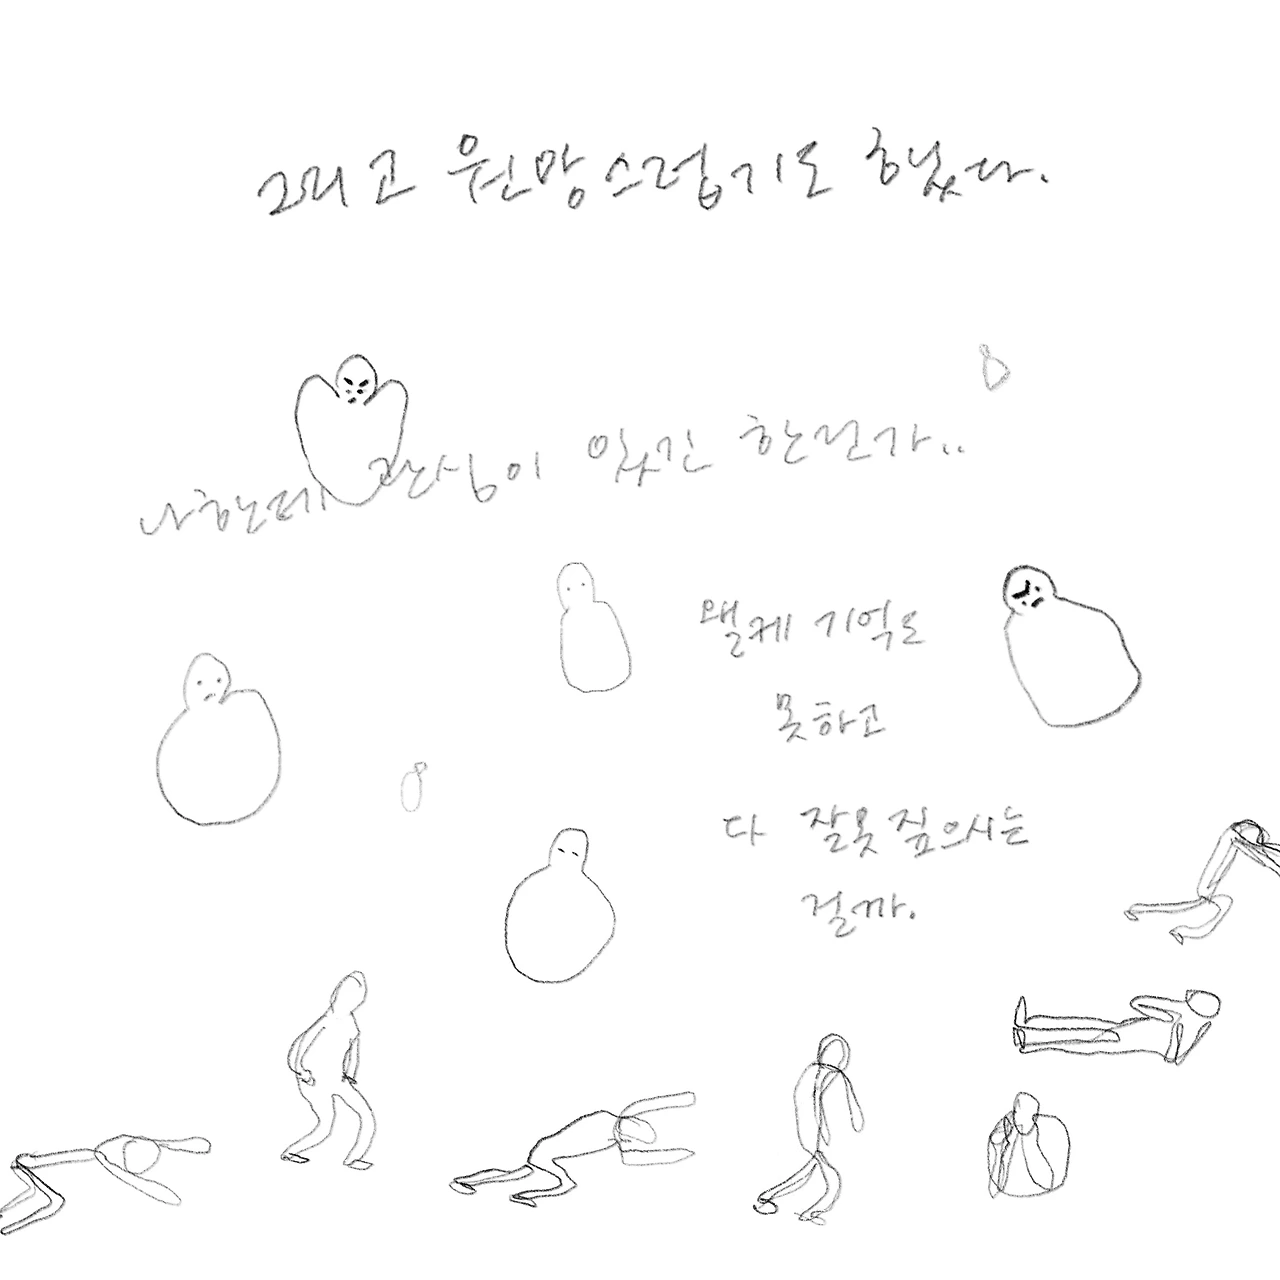 그리고 원망스럽기도 했다.
나한테 관심이 있긴 한건가..
왤케 기억도
못하고
다 잘못 짚으시는
걸까.